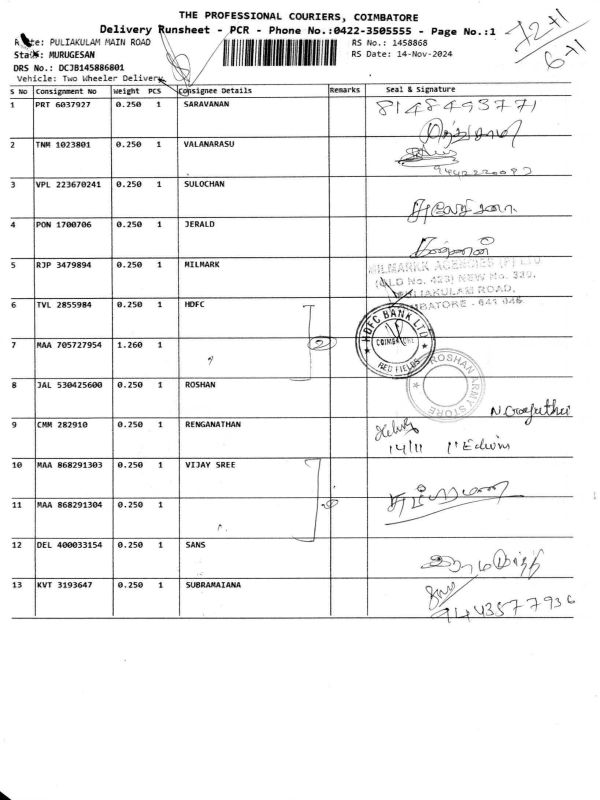 THE PROFESSIONAL COURIERS, COIMBATORE
Delivery Runsheet - PCR - Phone No.:0422-3505555 - Page No.:1
72+1
6-71
PULIAKULAM MAIN ROAD
RS No.: 1458868
MURUGESAN
RS Date: 14-Nov-2024
DRS No.: DCJB145886801
Vehicle: Two Wheeler Delivery
S No Consignment No Weight PCS Consignee Details Remarks Seal & Signature
1 PRT 6037927 0.250 1 SARAVANAN 8148493771
2 TNM 1023801 0.250 1 VALANARASU
3 VPL 223670241 0.250 1 SULOCHAN
4 PON 1700706 0.250 1 JERALD
5 RJP 3479894 0.250 1 MILMARK
MILMARKK AGENCIES (P) LTD
(OLD No. 423) NEW No. 330,
PULIAKULAM ROAD,
COIMBATORE - 641 045
6 TVL 2855984 0.250 1 HDFC
HDFC BANK LTD
COIMBATORE
RED FIELDS
7 MAA 705727954 1.260 1 2
8 JAL 530425600 0.250 1 ROSHAN
ROSHAN ARMY STORE
9 CMM 282910 0.250 1 RENGANATHAN
14/11 Edwin
10 MAA 868291303 0.250 1 VIJAY SREE
11 MAA 868291304 0.250 1
12 DEL 400033154 0.250 1 SANS
13 KVT 3193647 0.250 1 SUBRAMAIANA
9443577936